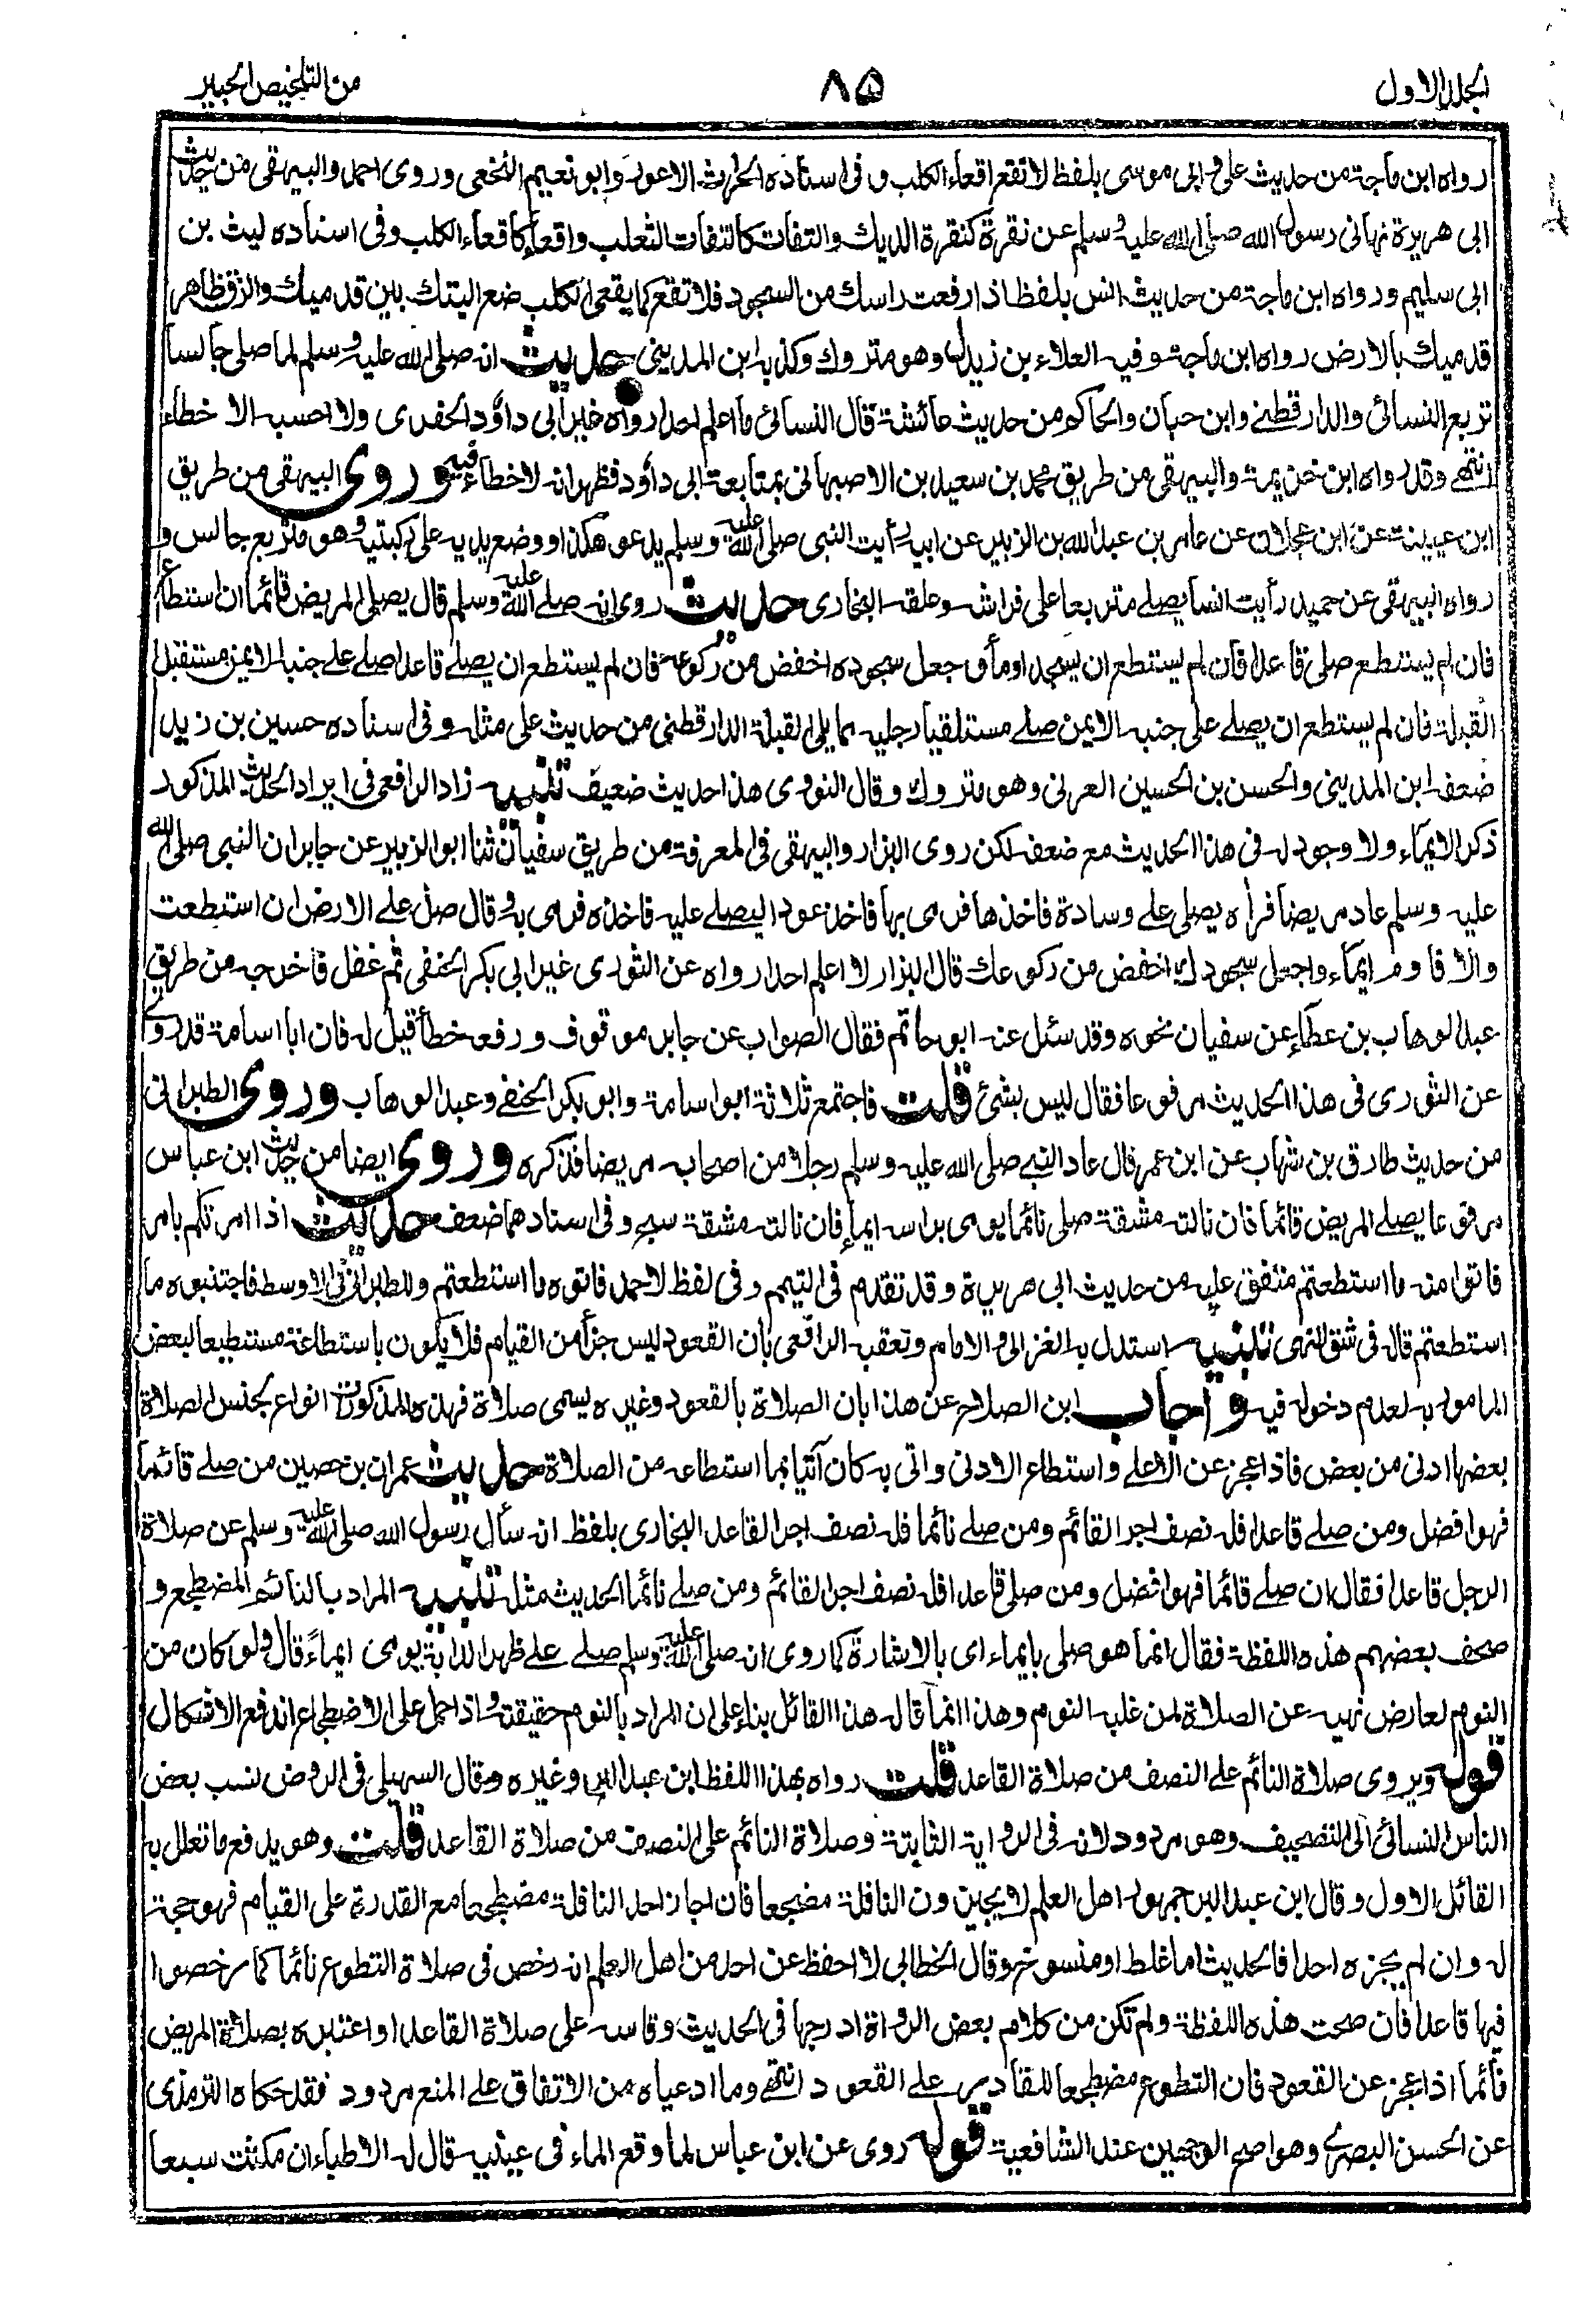 الجلد الاول
٨٥
من التلخيص الحبير
رواه ابن ماجة من حديث علي وابى موسى بلفظ لا تقع اقعاء الكلب وفى اسناده الحارث الاعور وابو نعيم النخعى وروى احمد والبيهقى من حديث
ابى هريرة نهانى رسول الله صلى الله عليه وسلم عن نقرة كنقرة الديك والتفات كالتفات الثعلب واقعاء كاقعاء الكلب وفى اسناده ليث بن
ابى سليم ورواه ابن ماجة من حديث انس بلفظ اذا رفعت راسك من السجود فلا تقع كما يقعى الكلب ضع اليتك بين قدميك والزق ظاهر
قدميك بالارض رواه ابن ماجة وفيه العلاء بن زيدل وهو متروك وكذبه ابن المدينى حديث انه صلى الله عليه وسلم لما صلى جالسا
تربع النسائى والدارقطنے وابن حبان والحاكم من حديث عائشة قال النسائى ما اعلم احدا رواه غير ابى داؤد الحفرى ولا احسبه الا خطاء
انتهے وقد رواه ابن خزيمة والبيهقى من طريق محمد بن سعيد بن الاصبهانى بمتابعة ابى داؤد فظهر انه لا خطاء فيه وروى البيهقى من طريق
ابن عيينة عن ابن عجلان عن عامر بن عبد الله بن الزبير عن ابيه رأيت النبى صلى الله عليه وسلم يدعو هكذا ووضع يديه على ركبتيه وهو متربع جالس و
رواه البيهقى عن حميد رأيت انسا يصلے متربعا على فراشه وعلقه البخارى حديث روى انه صلے الله عليه وسلم قال يصلى المريض قائما ان استطاع
فان لم يستطع صلى قاعدا فان لم يستطع ان يسجد اومأ وجعل سجوده اخفض من ركوعه فان لم يستطع ان يصلے قاعدا صلے علے جنبه الايمن مستقبل
القبلة فان لم يستطع ان يصلے على جنبه الايمن صلے مستلقيا رجليه مما يلى القبلة الدارقطنى من حديث على مثله وفى اسناده حسين بن زيد
ضعفه ابن المدينى والحسن بن الحسين العرنى وهو متروك وقال النووى هذا حديث ضعيف تنبيه زاد الرافعى فى ايراد الحديث المذكور
ذكر الايماء ولا وجود له فى هذا الحديث مع ضعفه لكن روى البزار والبيهقى فى المعرفة من طريق سفيان ثنا ابو الزبير عن جابر ان النبى صلى الله
عليه وسلم عاد مريضا فرأه يصلى علے وسادة فاخذها فرمى بها فاخذ عودا ليصلے عليه فاخذه فرمى به وقال صل علے الارض ان استطعت
والا فاوم ايماء واجعل سجودك اخفض من ركوعك قال البزار لا اعلم احدا رواه عن الثورى غير ابى بكر الحنفى ثم غفل فاخرجه من طريق
عبد الوهاب بن عطاء عن سفيان نحوه وقد سئل عنه ابو حاتم فقال الصواب عن جابر موقوف ورفعه خطأ قيل له فان ابا اسامة قد روى
عن الثورى فى هذا الحديث مرفوعا فقال ليس بشئ قلت فاجتمع ثلاثة ابو اسامة وابو بكر الحنفے وعبد الوهاب وروى الطبرانى
من حديث طارق بن شهاب عن ابن عمر قال عاد النبے صلى الله عليه وسلم رجلا من اصحابه مريضا فذكره وروى ايضا من حديث ابن عباس
مرفوعا يصلے المريض قائما فان نالته مشقة صلى نائما يومى براسه ايماء فان نالته مشقة سبح وفى اسنادهما ضعف حديث اذا امرتكم بامر
فاتوا منه ما استطعتم متفق عليه من حديث ابى هريرة وقد تقدم فى التيمم وفى لفظ لاحمد فاتوه ما استطعتم وللطبرانى فى الاوسط فاجتنبوه ما
استطعتم قاله فى شق النهى تنبيه استدل به الغزالى والامام وتعقبه الرافعى بان القعود ليس جزأ من القيام فلا يكون باستطاعته مستطيعا لبعض
المامور به لعدم دخوله فيه واجاب ابن الصلاح عن هذا بان الصلاة بالقعود وغيره يسمى صلاة فهذه المذكورات انواع لجنس الصلاة
بعضها ادنى من بعض فاذا عجز عن الاعلے واستطاع الادنى واتى به كان آتيا بما استطاعه من الصلاة حديث عمران بن حصين من صلے قائما
فهو افضل ومن صلے قاعدا فله نصف اجر القائم ومن صلے نائما فله نصف اجر القاعد البخارى بلفظ انه سأل رسول الله صلى الله عليه وسلم عن صلاة
الرجل قاعدا فقال ان صلے قائما فهو افضل ومن صلى قاعدا فله نصف اجر القائم ومن صلے نائما الحديث مثله تنبيه المراد بالنائم المضطجع و
صحف بعضهم هذه اللفظة فقال انما هو صلى بايماء اى بالاشارة كما روى انه صلى الله عليه وسلم صلے علے ظهر الدابة يومى ايماءً قال ولو كان من
النوم لعارض نهيه عن الصلاة لمن غلبه النوم وهذا انما قاله هذا القائل بناء على ان المراد بالنوم حقيقته واذا حمل على الاضطجاع اندفع الاشكال
قوله ويروى صلاة النائم علے النصف من صلاة القاعد قلت رواه بهذا اللفظ ابن عبد البر وغيره وقال السهيلى فى الروض نسب بعض
الناس النسائى الى التصحيف وهو مردود لانه فى الرواية الثابتة وصلاة النائم على النصف من صلاة القاعد قلت وهو يدفع ما تعلل به
القائل الاول وقال ابن عبد البر جمهور اهل العلم لا يجيزون النافلة مضجعا فان اجاز احد النافلة مضطجعا مع القدرة على القيام فهو حجة
له وان لم يجزه احد فالحديث اما غلط او منسوخ وقال الخطابى لا احفظ عن احد من اهل العلم انه رخص فى صلاة التطوع نائما كما رخصوا
فيها قاعدا فان صحت هذه اللفظة ولم تكن من كلام بعض الرواة ادرجها فى الحديث وقاسه على صلاة القاعد او اعتبره بصلاة المريض
نائما اذا عجز عن القعود فان التطوع مضطجعا للقادر علے القعود انتهے وما ادعياه من الاتفاق علے المنع مردود فقد حكاه الترمذى
عن الحسن البصرے وهو اصح الوجهين عند الشافعية قوله روى عن ابن عباس لما وقع الماء فى عينيه قال له الاطباء ان مكثت سبعا